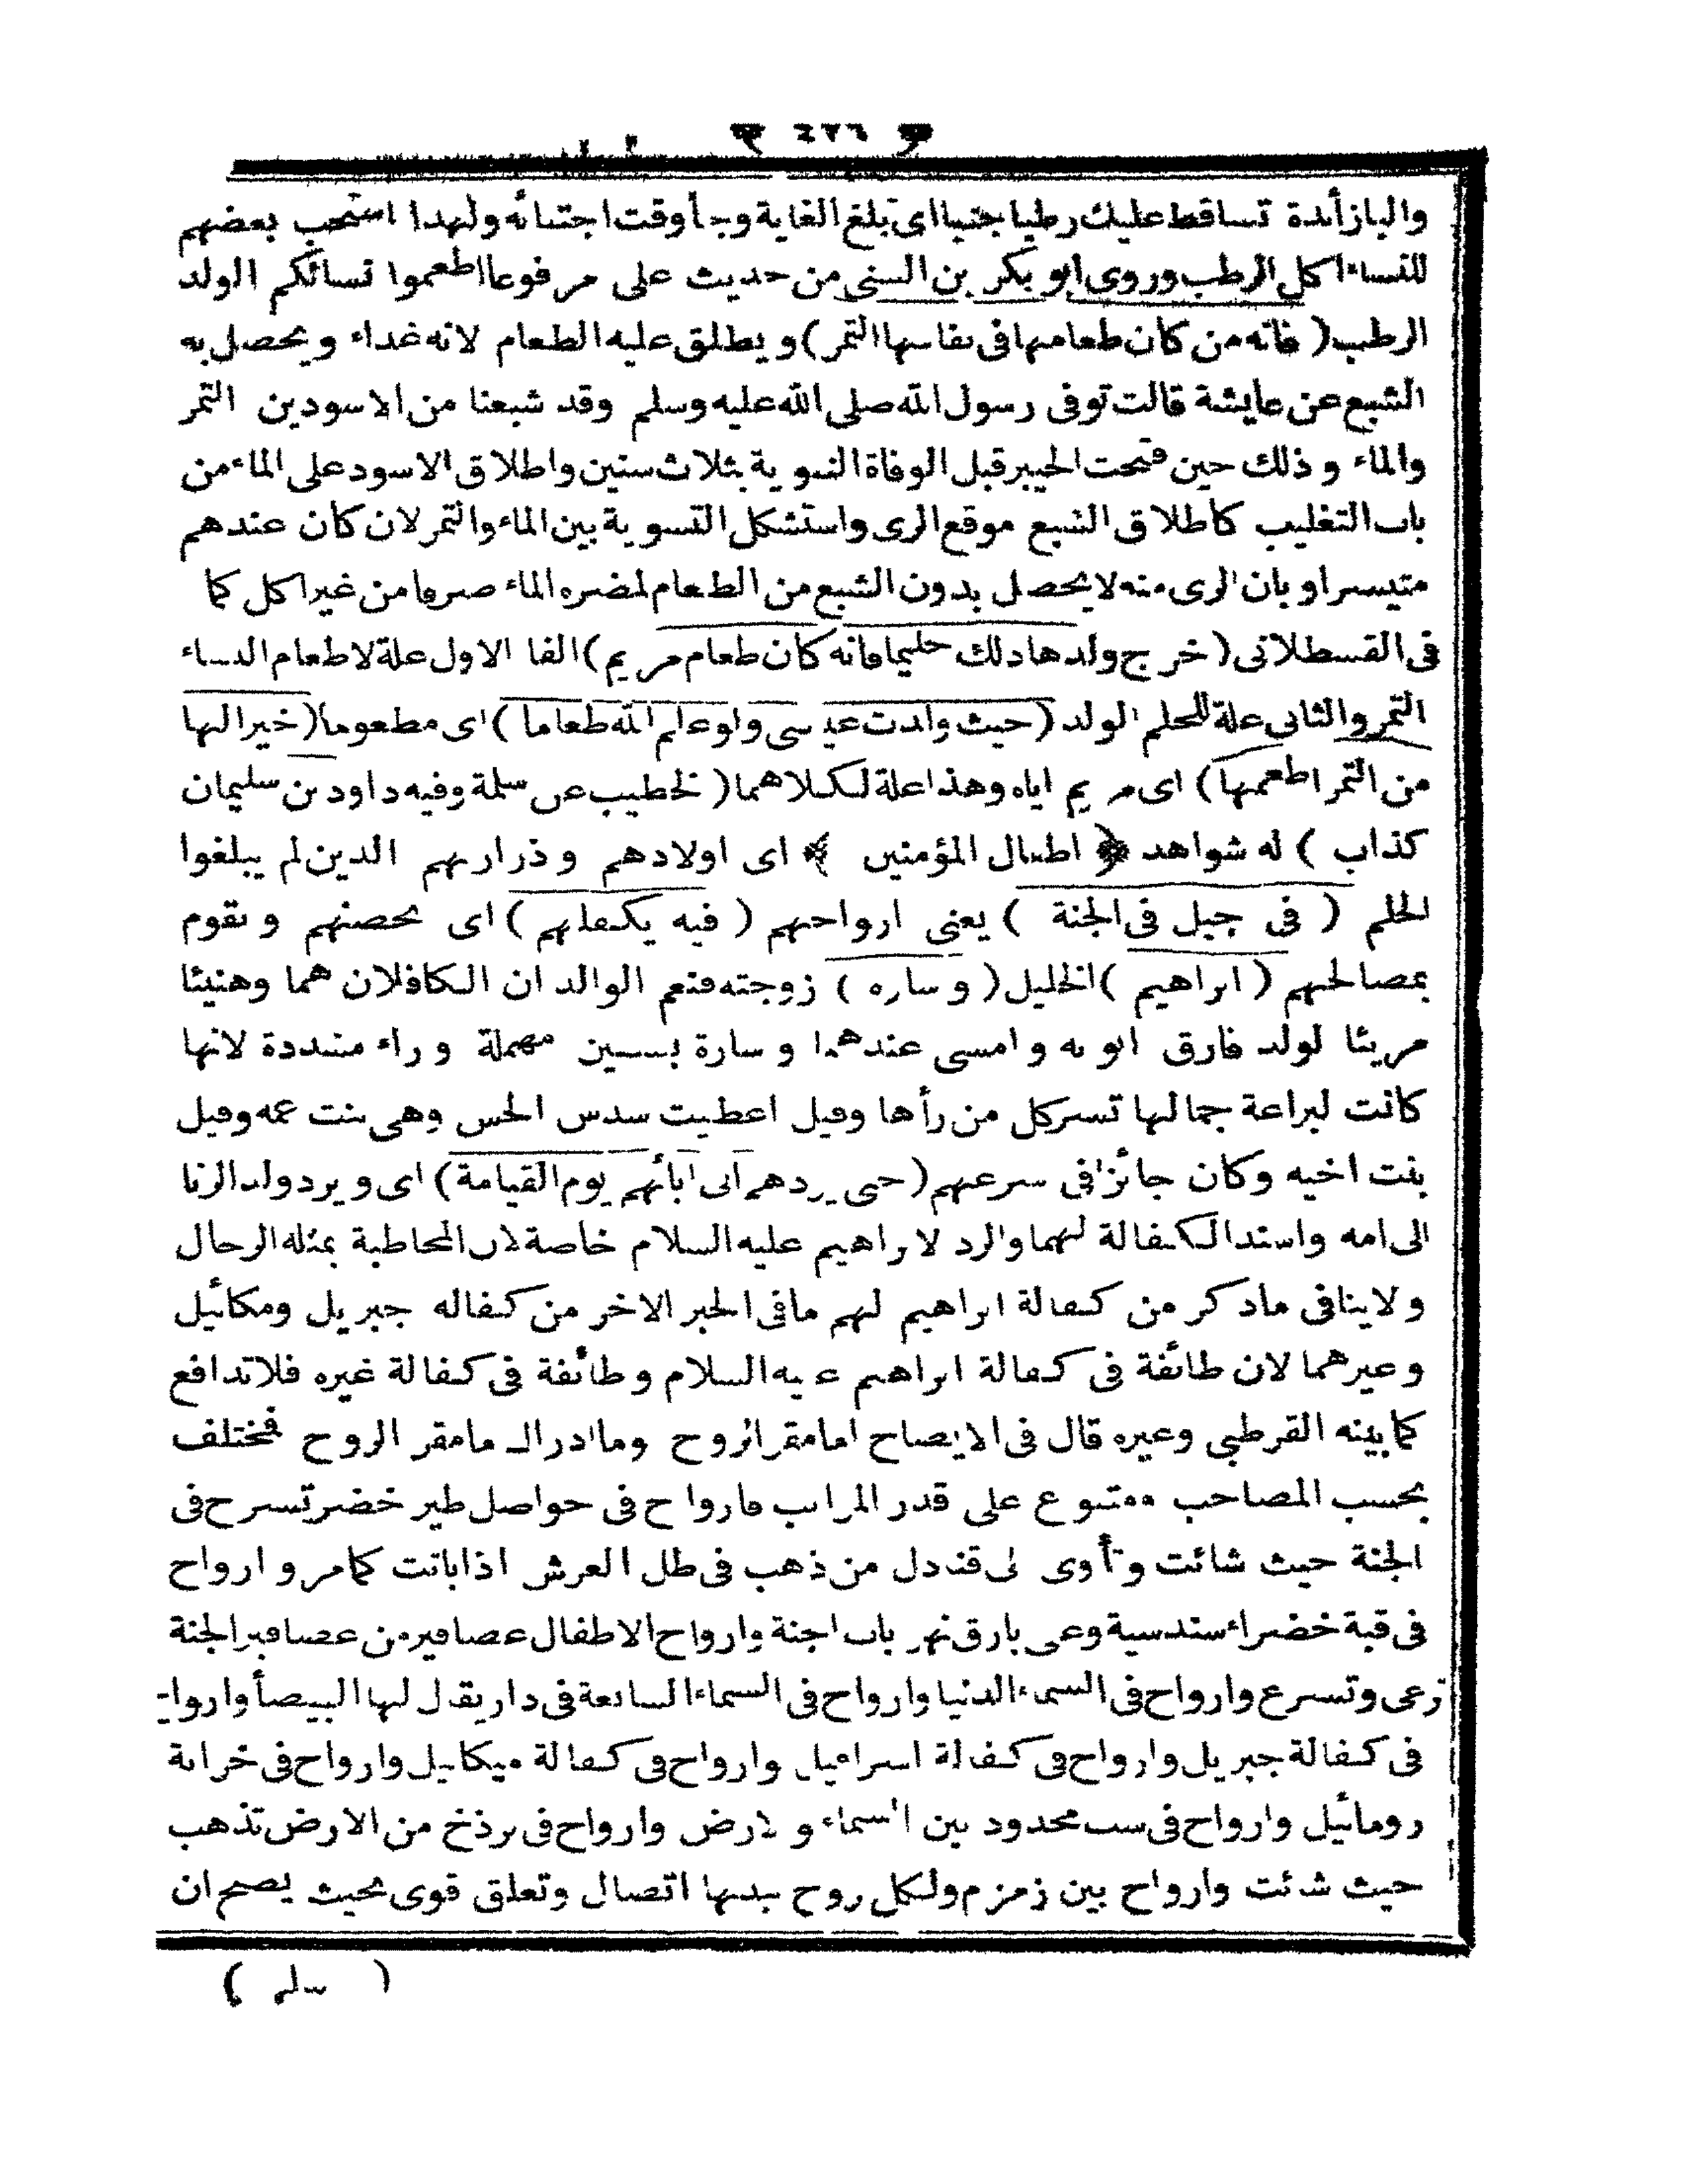 ﴿ ٤٢٦ ﴾
والبازأندة تساقط عليك رطبا جنيا اى تبلغ الغاية وجأ وقت اجتنائه ولهذا استحب بعضهم
للنساء اكل الرطب وروى ابو بكر بن السنى من حديث على مرفوعا اطعموا نسائكم الولد
الرطب ( فانه من كان طعامها فى نفاسها التمر ) ويطلق عليه الطعام لانه غداء ويحصل به
الشبع عن عايشة قالت توفى رسول الله صلى الله عليه وسلم وقد شبعنا من الاسودين التمر
والماء وذلك حين فتحت الخيبر قبل الوفاة النبوية بثلاث سنين واطلاق الاسود على الماء من
باب التغليب كاطلاق الشبع موقع الرى واستشكل التسوية بين الماء والتمر لان كان عندهم
متيسرا وبان الرى منه لا يحصل بدون الشبع من الطعام لمضره الماء صرفا من غير اكل كما
فى القسطلانى ( خرج ولدها ذلك حليما فانه كان طعام مريم ) الفا الاول علة لاطعام النساء
التمر والثانى علة للحلم الولد ( حيث ولدت عيسى ولو علم الله طعاما ) اى مطعوما ( خيرا لها
من التمر اطعمها ) اى مريم اياه وهذا علة لكلاهما ( الخطيب عن سلمة وفيه داود بن سليمان
كذاب ) له شواهد ﴿ اطفال المؤمنين ﴾ اى اولادهم وذراريهم الذين لم يبلغوا
الحلم ( فى جبل فى الجنة ) يعنى ارواحهم ( فيه يكفلهم ) اى يحصنهم ويقوم
بمصالحهم ( ابراهيم ) الخليل ( وساره ) زوجته فنعم الوالدان الكافلان هما وهنيئا
مريئا لولد فارق ابويه وامسى عندهما وسارة بسين مهملة وراء مشددة لانها
كانت لبراعة جمالها تسر كل من رأها وقيل اعطيت سدس الحسن وهى بنت عمه وقيل
بنت اخيه وكان جائزا فى شرعهم ( حتى يردهم الى ابائهم يوم القيامة ) اى ويرد ولد الزنا
الى امه واسند الكفالة لهما والرد لابراهيم عليه السلام خاصة لان المخاطبة بمثله الرجال
ولا ينافى ماذكر من كفالة ابراهيم لهم مافى الخبر الاخر من كفاله جبريل ومكائيل
وغيرهما لان طائفة فى كفالة ابراهيم عليه السلام وطائفة فى كفالة غيره فلا تدافع
كما بينه القرطبى وغيره قال فى الايضاح اما مقر الروح وما ادراك مامقر الروح فمختلف
بحسب المصاحب ومتنوع على قدر المراتب فارواح فى حواصل طير خضر تسرح فى
الجنة حيث شائت وتأوى الى قنادل من ذهب فى ظل العرش اذا باتت كمامر وارواح
فى قبة خضراء سندسية وعى بارق نهر باب الجنة وارواح الاطفال عصافير من عصافير الجنة
ترعى وتسرح وارواح فى السماء الدنيا وارواح فى السماء السابعة فى دار يقال لها البيضأ وارواح
فى كفالة جبريل وارواح فى كفالة اسرافيل وارواح فى كفالة ميكايل وارواح فى خزانة
رومائيل وارواح فى سب محدود بين السماء والارض وارواح فى برذخ من الارض تذهب
حيث شائت وارواح بين زمزم ولكل روح ببدنها اتصال وتعلق قوى بحيث يصح ان